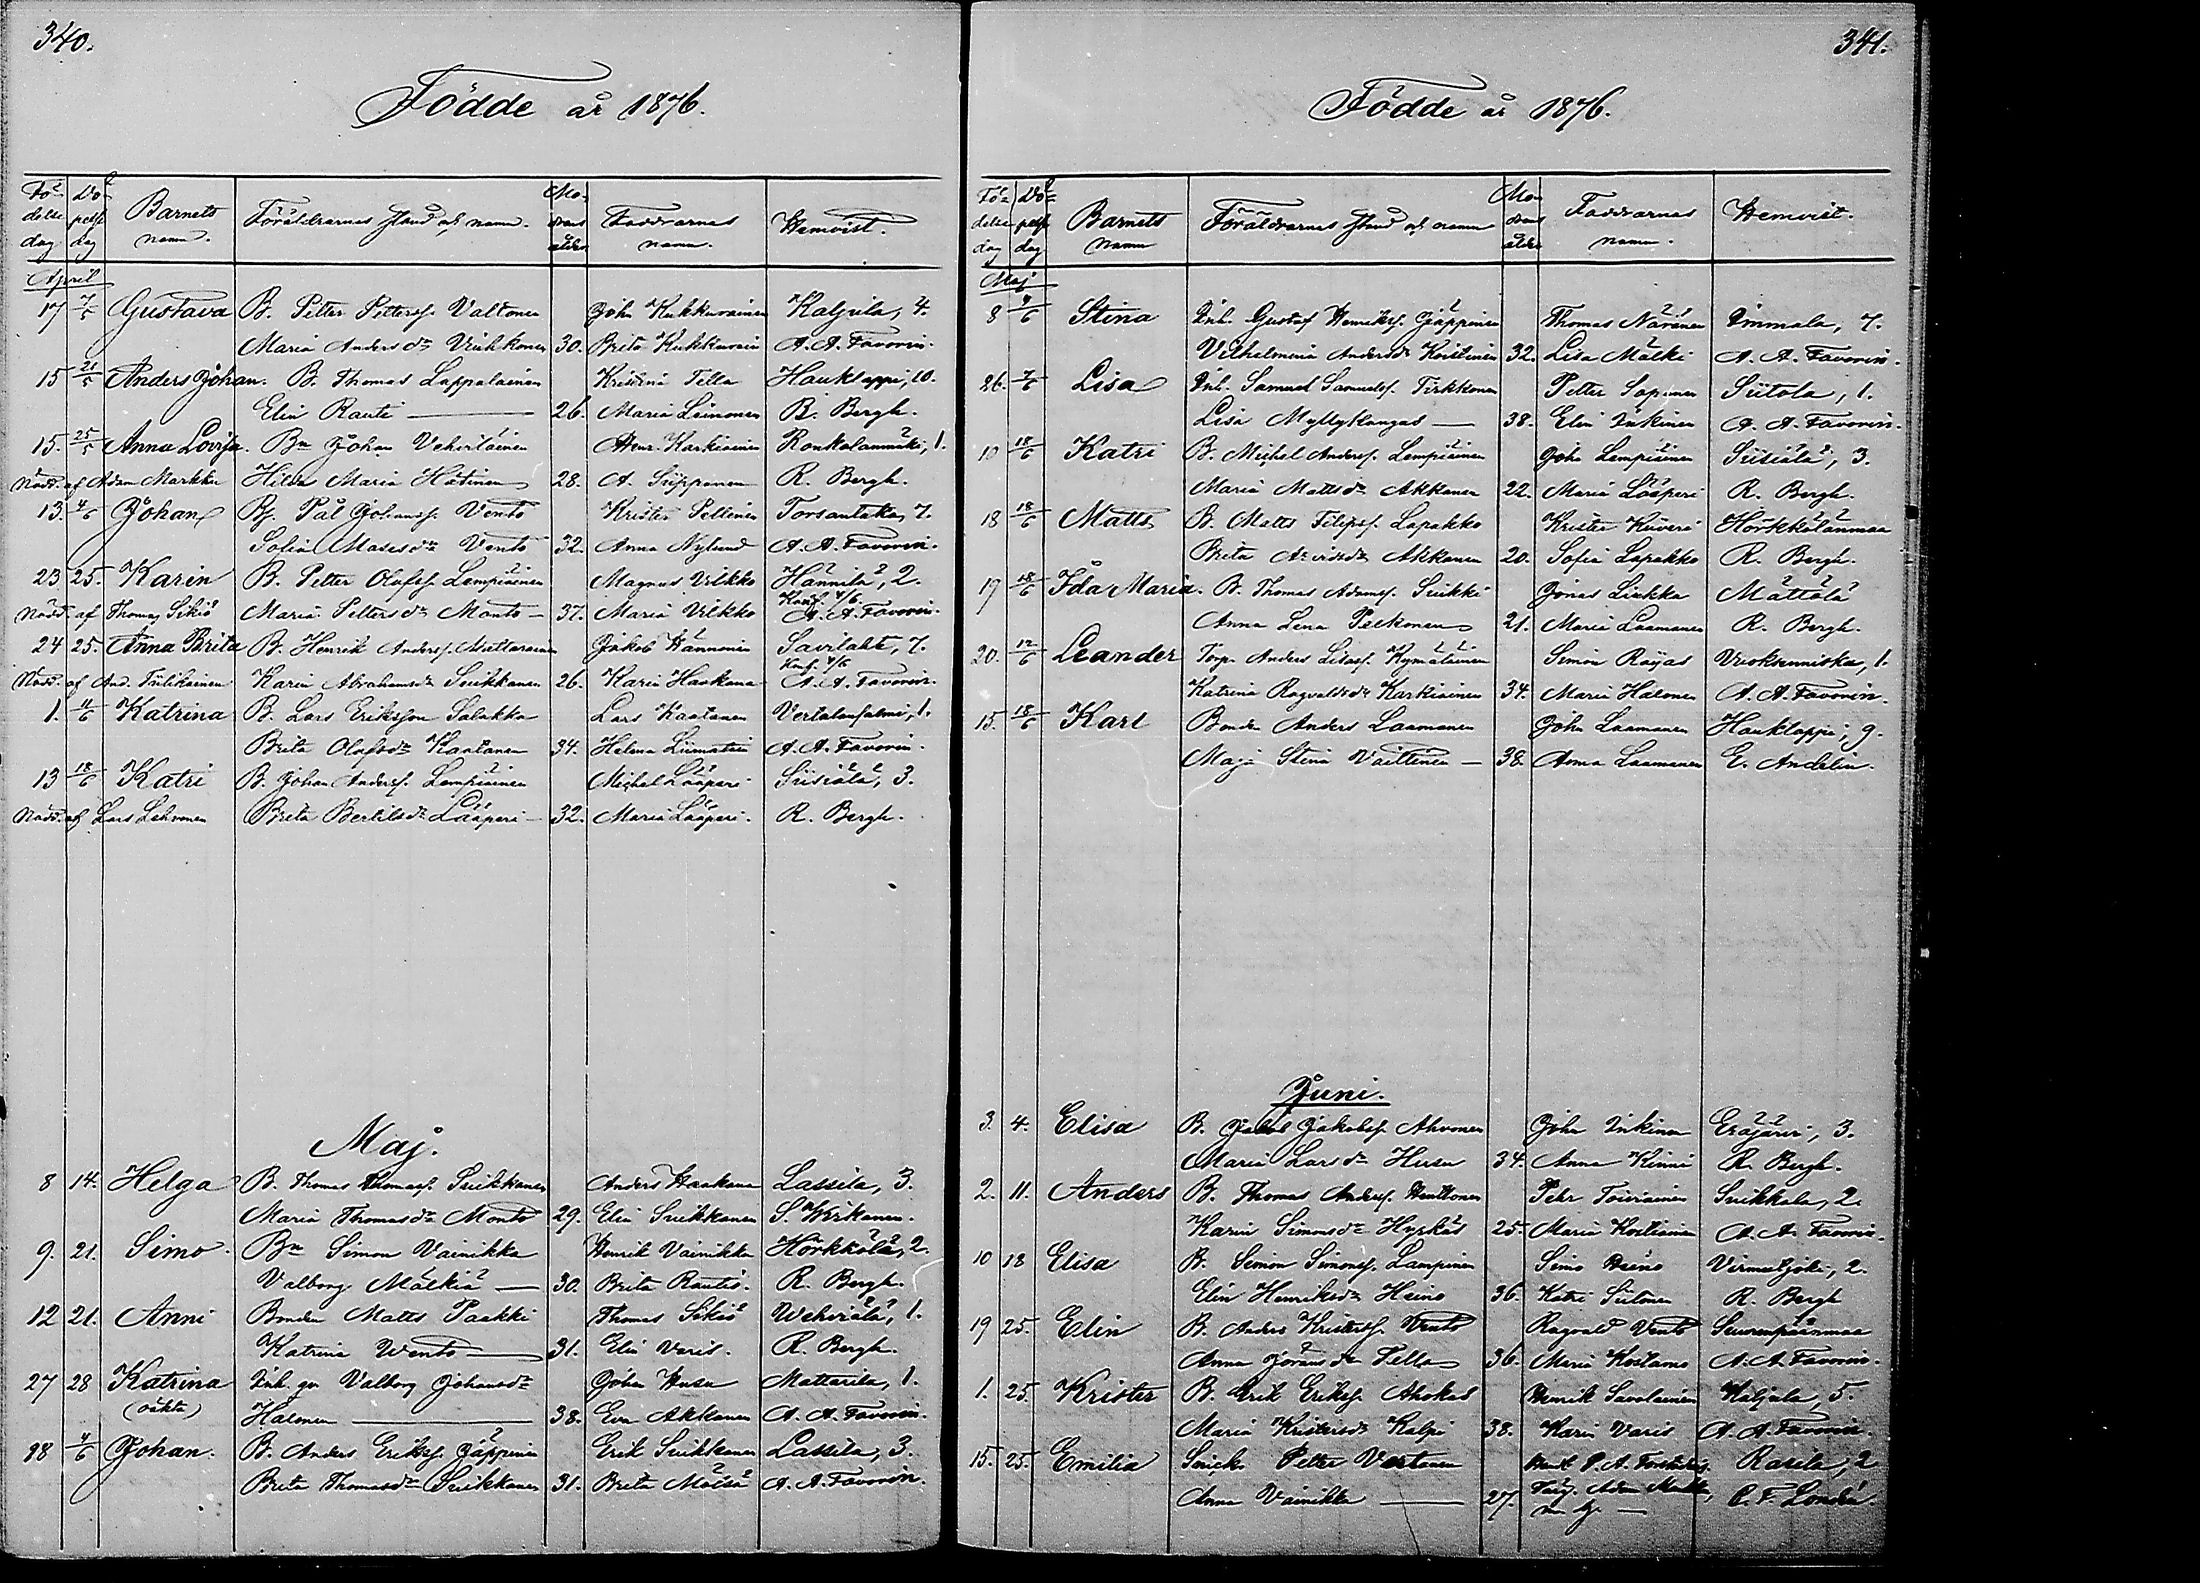 340.
Födde år 1876.
Födelse dag Döpelse dag Barnets namn. Föräldrarnes stånd och namn. Modrens ålder Faddrarnes namn. Hemvist.
April
17 7/5 Gustava B. Petter Petterss. Valtonen John Kukkurainen Kaljula, 4.
Maria Andersdr 30. Brita Kukkurain A. A. Favorin.
15 21/5 Anders Johan. B. Thomas Lappalainen Kristina Tella Hauklappi, 10.
Elin Rauti — 26. Maria Leinonen R. Bergh.
15. 25/5 Anna Lovisa. Bn Johan Vehviläinen Henr. Karkiainen Ronkolanmäki, 1.
Nöd. af Adam Markku Hilda Maria Hätinen 28. A. Sipponen R. Bergh.
13. 4/6 Johan Bs. Pål Johanss. Vento Krister Peltinen Torsantaka, 7.
Sofia Matsdr Vento 32. Anna Nylund A. A. Favorin.
23 25. Karin B. Petter Olofss. Lempiäinen Magnus Ukkko Hannila, 2.
Nöd. af Thomas Sikiö Maria Pettersdr Monto — 37. Maria Ukkko Konf. 4/6 A. A. Favorin.
24 25. Anna Brita B. Henrik Anderss. Mattarainen Jakob Hannonen Savilahti, 7.
Nöd. af And. Tulikainen Karin Abrahamsdr Suikkanen 26. Karin Haakana Konf. 4/6 A. A. Favorin.
1. 11/6 Katrina B. Lars Eriksson Salakka Lars Kaatanen Vertalansalmi, 1.
Brita Olofsdr Kaatanen 34. Helena Liimatain A. A. Favorin.
13 18/6 Katri B. Johan Anderss. Lempiäinen Michel Lääperi Siisiälä, 3.
Nöd. af Lars Lehvonen Brita Bertilsdr Lääperi — 32. Maria Lääperi. R. Bergh.
Maj.
8 14. Helga B. Thomas Thomass. Suikkanen Anders Haakana Lassila, 3.
Maria Thomasdr Monto 29. Elin Suikkanen S. Wirkanen.
9. 21. Simo. Bn Simon Vainikka Henrik Vainikka Hörkkölä, 2.
Valborg Mälkiä — 30. Brita Rautio. R. Bergh.
12 21. Anni Bonden Matts Paakki Thomas Sikiö Wehviälä, 1.
Katrina Wento — 31. Elin Varis. R. Bergh.
27 28 Katrina Inh. qv. Valborg Johansdr Johan Husu Mattarila, 1.
(oäkta) Halonen — 38. Eva Akkanen A. A. Favorin.
28 4/6 Johan. B. Anders Erikss. Jäppinen Erik Suikkanen Lassila, 3.
Brita Thomasdr Suikkanen 31. Brita Mälsä A. A. Favorin.
341.
Födde år 1876.
Födelse dag Döpelse dag Barnets namn Föräldrarnes stånd och namn Modrens ålder Faddrarnes namn. Hemvist.
Maj
8 4/6 Stina Inh. Gustaf Henrikss. Jäppinen Thomas Näränen Immala, 7.
Vilhelmina Andersdr Koistinen 32. Lisa Mälki A. A. Favorin.
26. 7/6 Lisa Inh. Samuel Samuelss. Tirkkonen Petter Sopanen Siitola, 1.
Lisa Myllykangas — 38. Elin Inkinen A. A. Favorin.
10 18/6 Katri B. Michel Anderss. Lempiäinen John Lempiäinen Siisiälä, 3.
Maria Mattsdr Akkanen 22. Maria Lääperi R. Bergh.
18 18/6 Matts B. Matts Filipss. Lapakko Krister Kuveri Hörkkölänmaa
Brita Arvidsdr Akkanen 20. Sofia Lapakko R. Bergh.
19 18/6 Ida Maria. B. Thomas Adamss. Suikki Jonas Liukka Mättölä
Anna Lena Pekonen 21. Maria Laamanen R. Bergh.
20. 12/6 Leander Torp. Anders Kymäläinen Simon Roijas Vuoksenniska, 1.
Katrina Ragvaldsdr Karkiainen 34. Maria Halonen A. A. Favorin.
15. 18/6 Karl Bonden Anders Laamanen John Laamanen Hauklappi, 9.
Maja Stina Vaittinen — 38. Anna Laamanen E. Andelin.
Juni.
3. 4. Elisa B. Jakob Jakobss. Ahvonen John Inkinen Eräjärvi, 3.
Maria Larsdr Husu 34. Anna Kinni R. Bergh.
2. 11. Anders B. Thomas Anderss. Henttonen Pehr Toiviainen Suikkala, 2.
Karin Simonsdr Hyrkäs 25. Maria Kostiainen A. A. Favorin.
10 18 Elisa B. Simon Simonss. Lampinen Simo Heino Virmutjoki, 2.
Elin Henriksdr Heino 36. Katri Siitonen R. Bergh
19 25. Elin B. Anders Kristerss. Vento Ragvald Vento Suurenpäänmaa
Anna Göransdr Pella 36. Maria Kostamo A. A. Favorin.
1. 25. Krister B. Erik Erikss. Ahokas Henrik Savolainen Kaljala, 5.
Maria Kristersdr Kalpi 38. Karin Varis A. A. Favorin.
15. 25. Emilia Snick. Petter Vertanen P. A. Rasila, 2
Anna Vainikka — 27. Adam C. F. Londén.